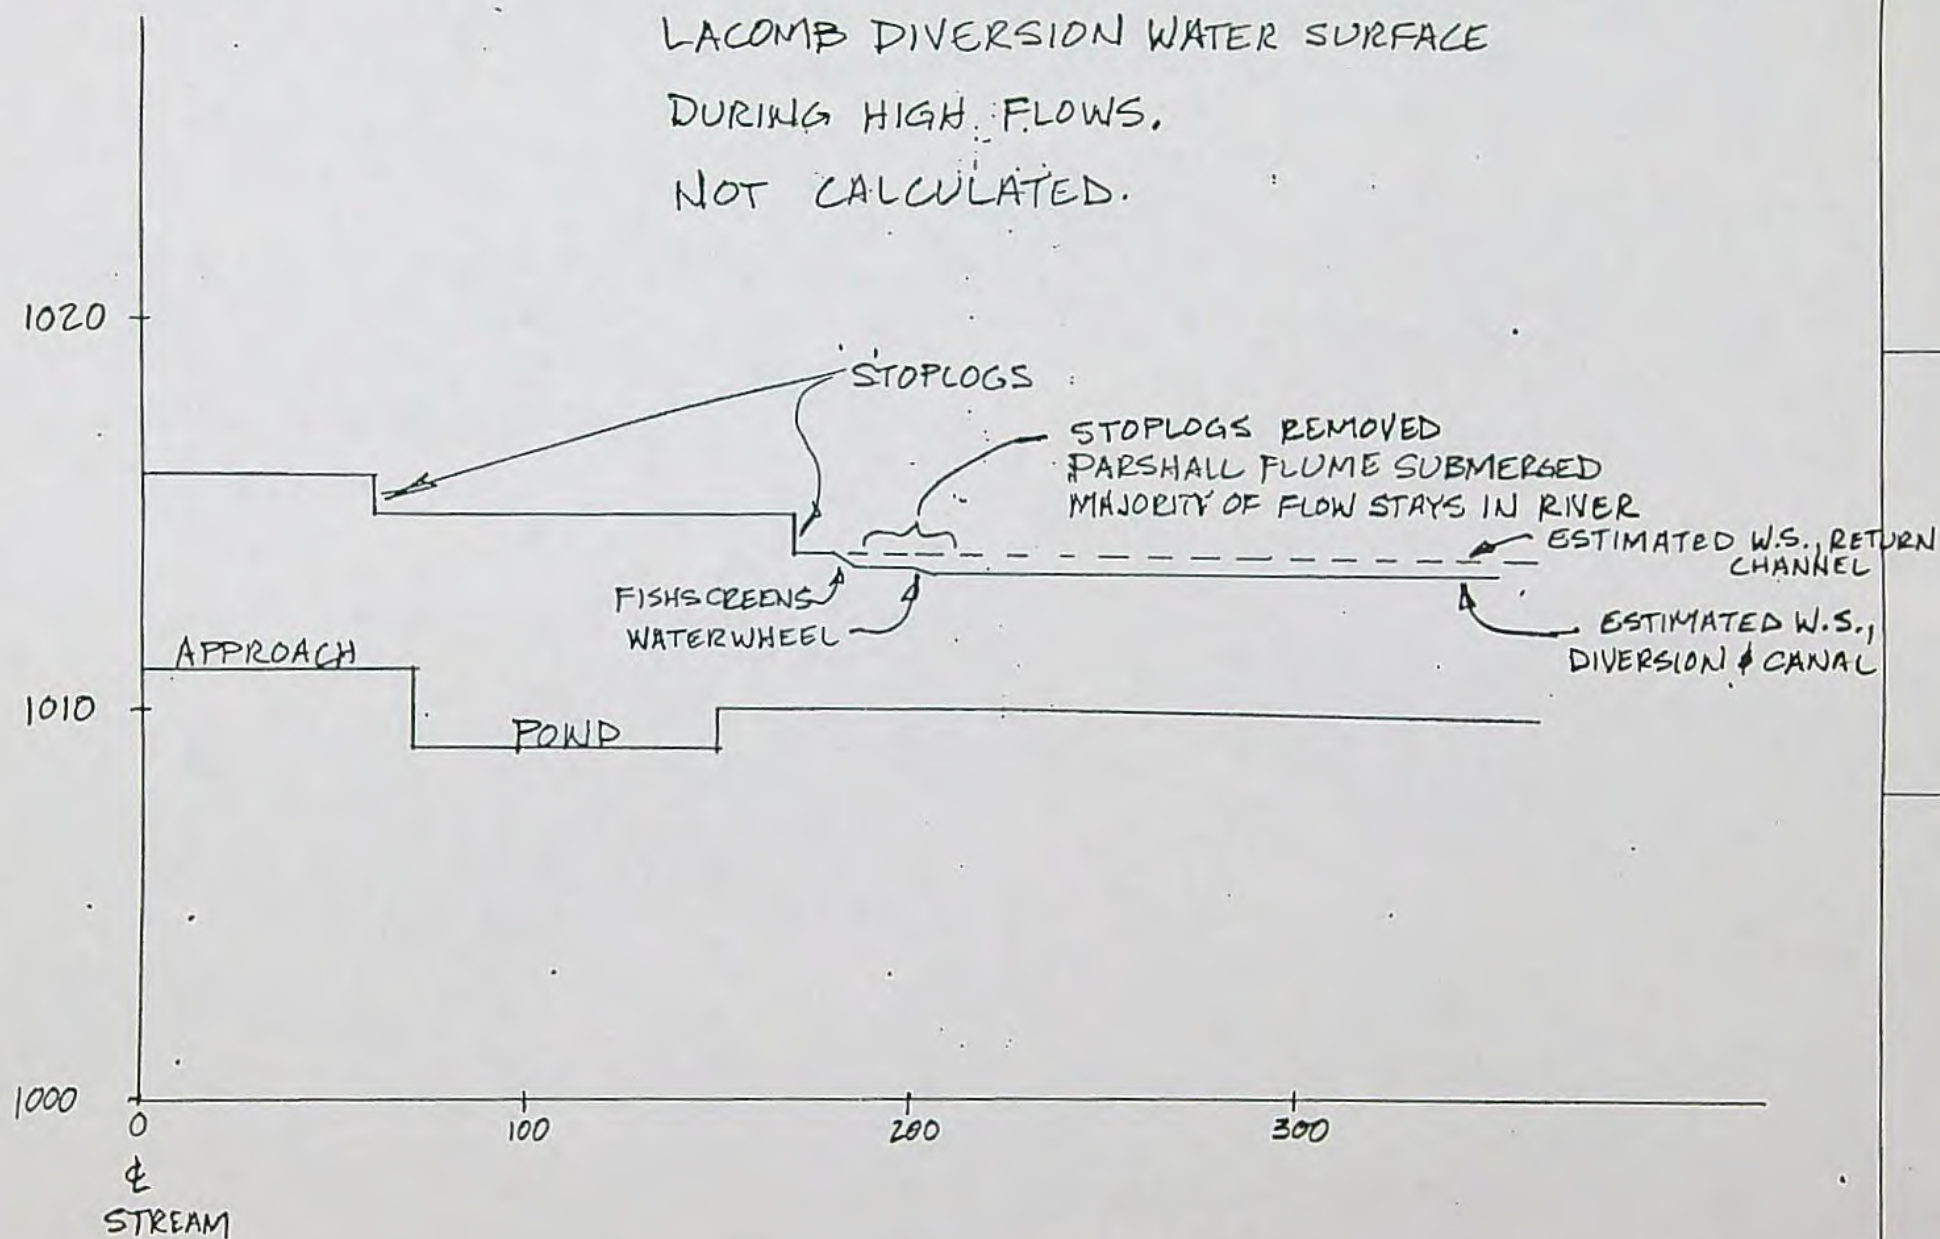 LACOMB DIVERSION WATER SURFACE
DURING HIGH FLOWS.
NOT CALCULATED.
1020
STOPLOGS
STOPLOGS REMOVED
PARSHALL FLUME SUBMERGED
MAJORITY OF FLOW STAYS IN RIVER
ESTIMATED W.S., RETURN
CHANNEL
FISHSCREENS
WATERWHEEL
ESTIMATED W.S.,
DIVERSION & CANAL
APPROACH
1010
POND
1000
0
100
200
300
℄
STREAM